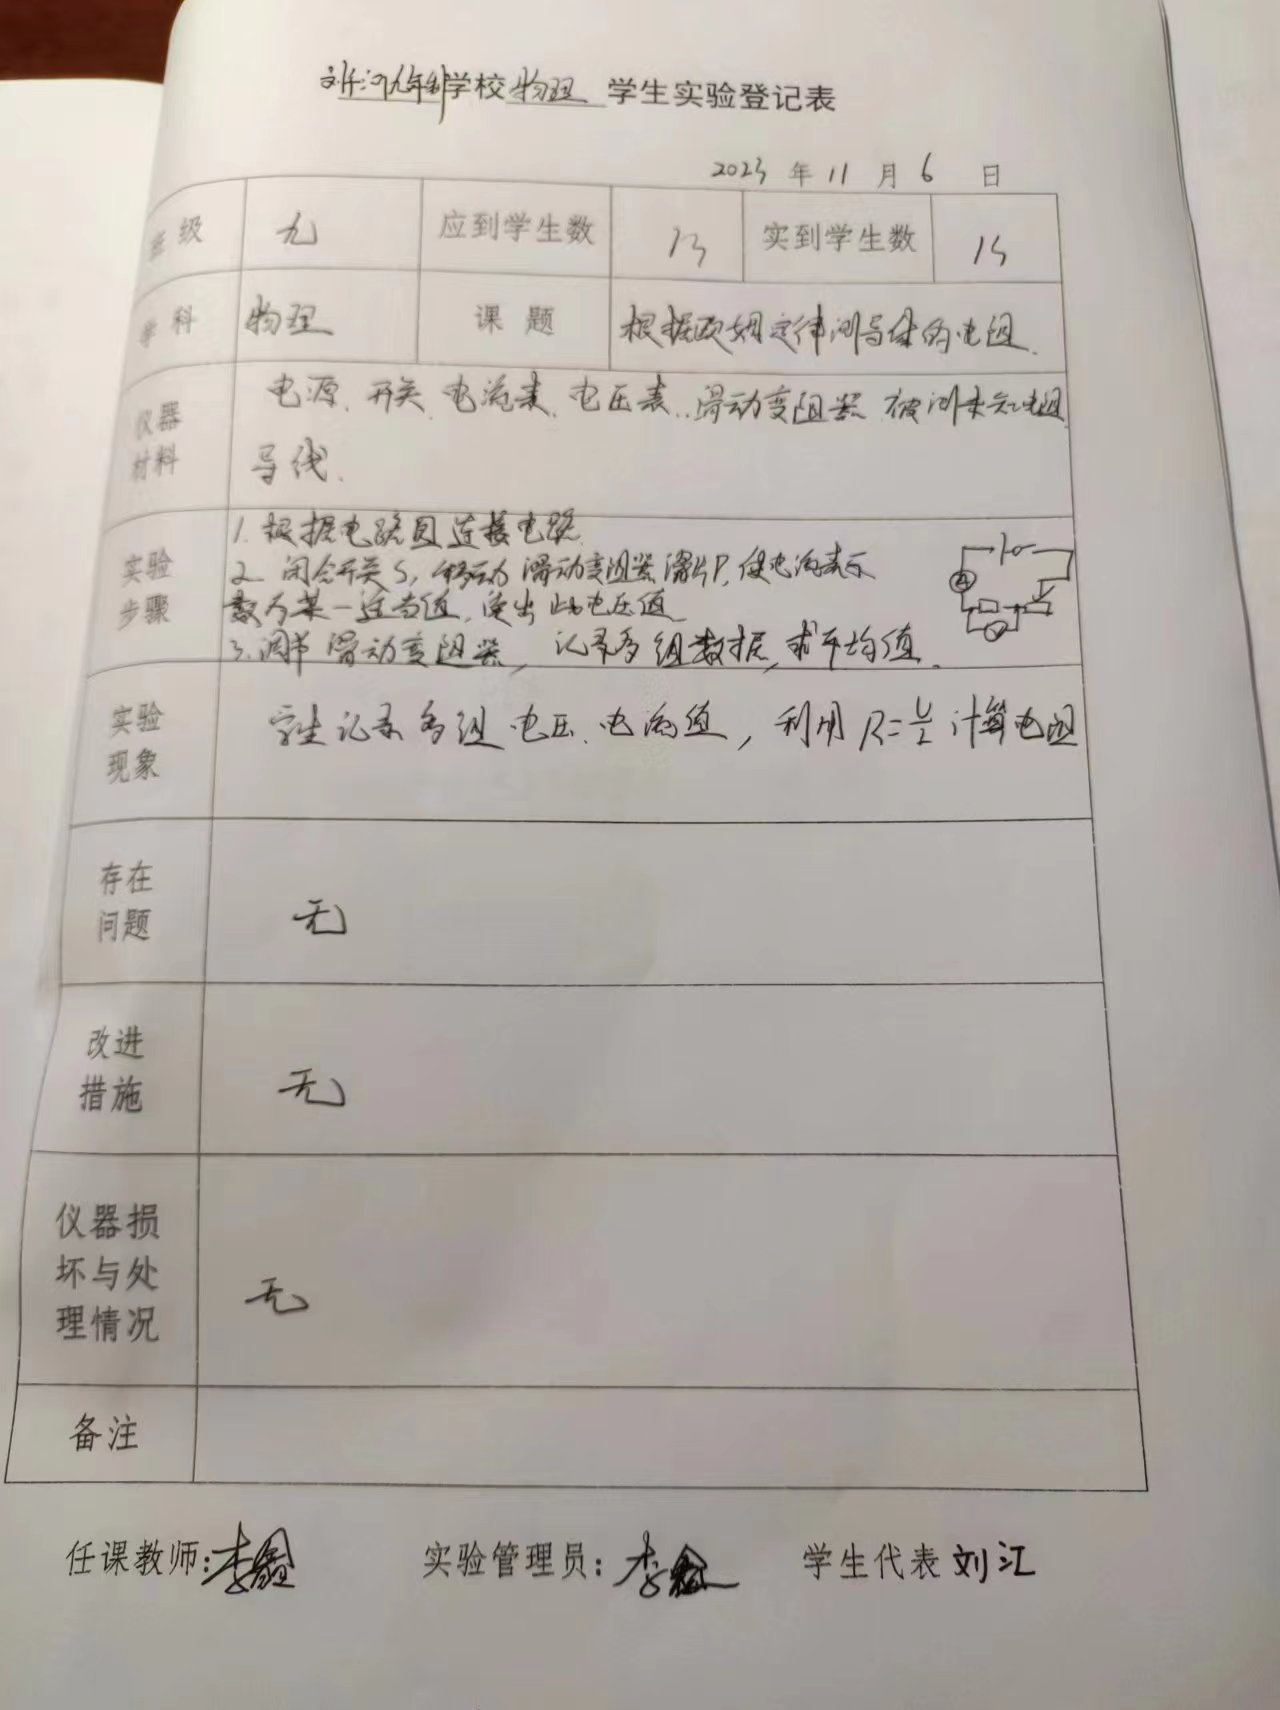 学校 物理 学生实验登记表
2023 年 11 月 6 日
班级 九 应到学生数 13 实到学生数 13
学科 物理 课题 根据欧姆定律测导体的电阻.
仪器材料 电源、开关、电流表、电压表、滑动变阻器、被测未知电阻
导线.
实验步骤 1. 根据电路图连接电路.
2. 闭合开关S, 移动滑动变阻器滑片P, 使电流表示
数为某一适当值, 读出此电压值
3. 调节滑动变阻器, 记录多组数据, 求平均值.
A
V
实验现象 学生记录多组电压、电流值, 利用 R=U/I 计算电阻
存在问题 无
改进措施 无
仪器损坏与处理情况 无
备注
任课教师: 李 实验管理员: 李 学生代表 刘江